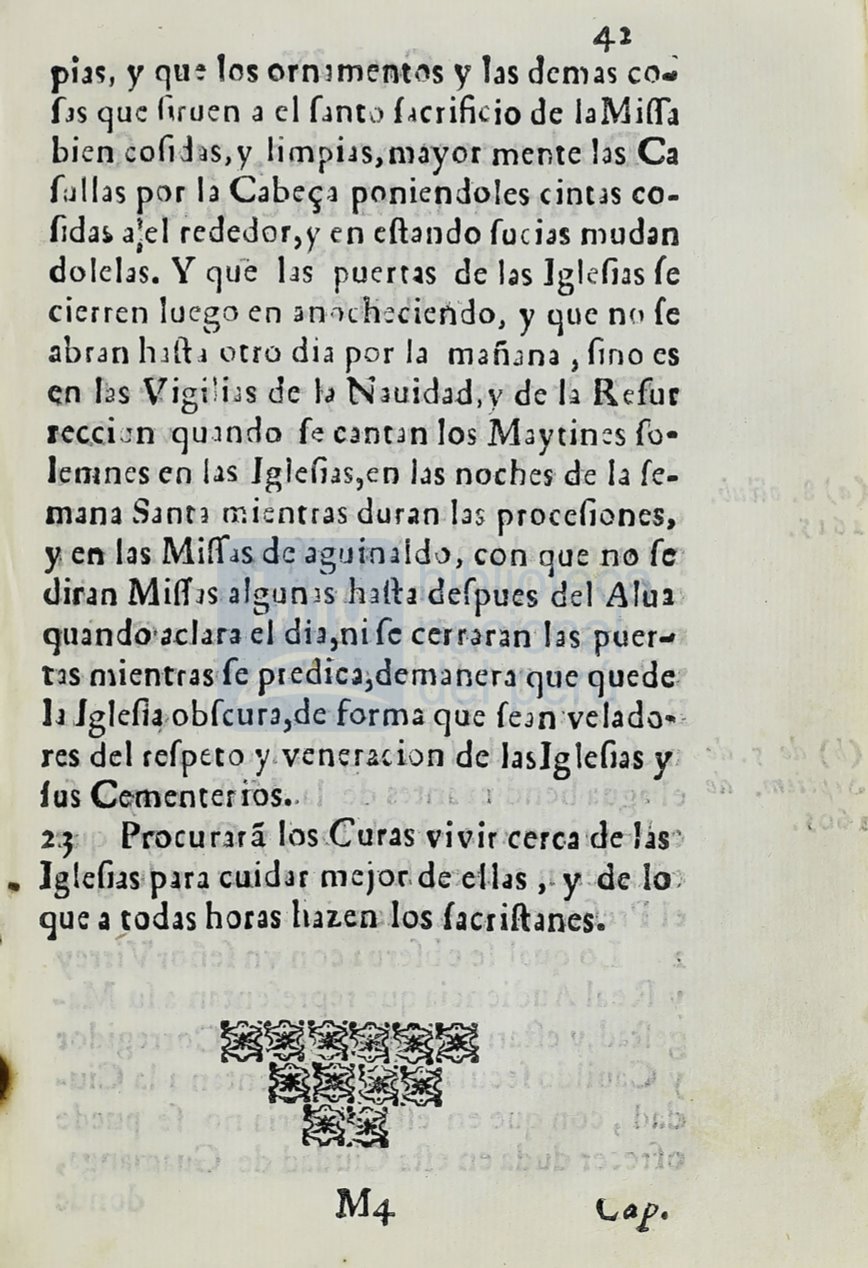 42
pias, y que los ornamentos y las demas co-
sas que siruen a el santo sacrificio de laMissa
bien cosidas,y limpias,mayor mente las Ca
sullas por la Cabeça poniendoles cintas co-
sidas a el rededor,y en estando sucias mudan
dolelas. Y que las puertas de las Iglesias se
cierren luego en anocheciendo, y que no se
abran hasta otro dia por la mañana , sino es
en las Vigilias de la Nauidad,y de la Resur
reccion quando se cantan los Maytines so-
lemnes en las Iglesias,en las noches de la se-
mana Santa mientras duran las procesiones,
y en las Missas de aguinaldo, con que no se
diran Missas algunas hasta despues del Alua
quando aclara el dia,ni se cerraran las puer-
tas mientras se predica,demanera que quede
la Iglesia obscura,de forma que sean velado-
res del respeto y veneracion de lasIglesias y
sus Cementerios.
23 Procurarã los Curas vivir cerca de las
Iglesias para cuidar mejor de ellas , y de lo
que a todas horas hazen los sacristanes.
M4 Cap.